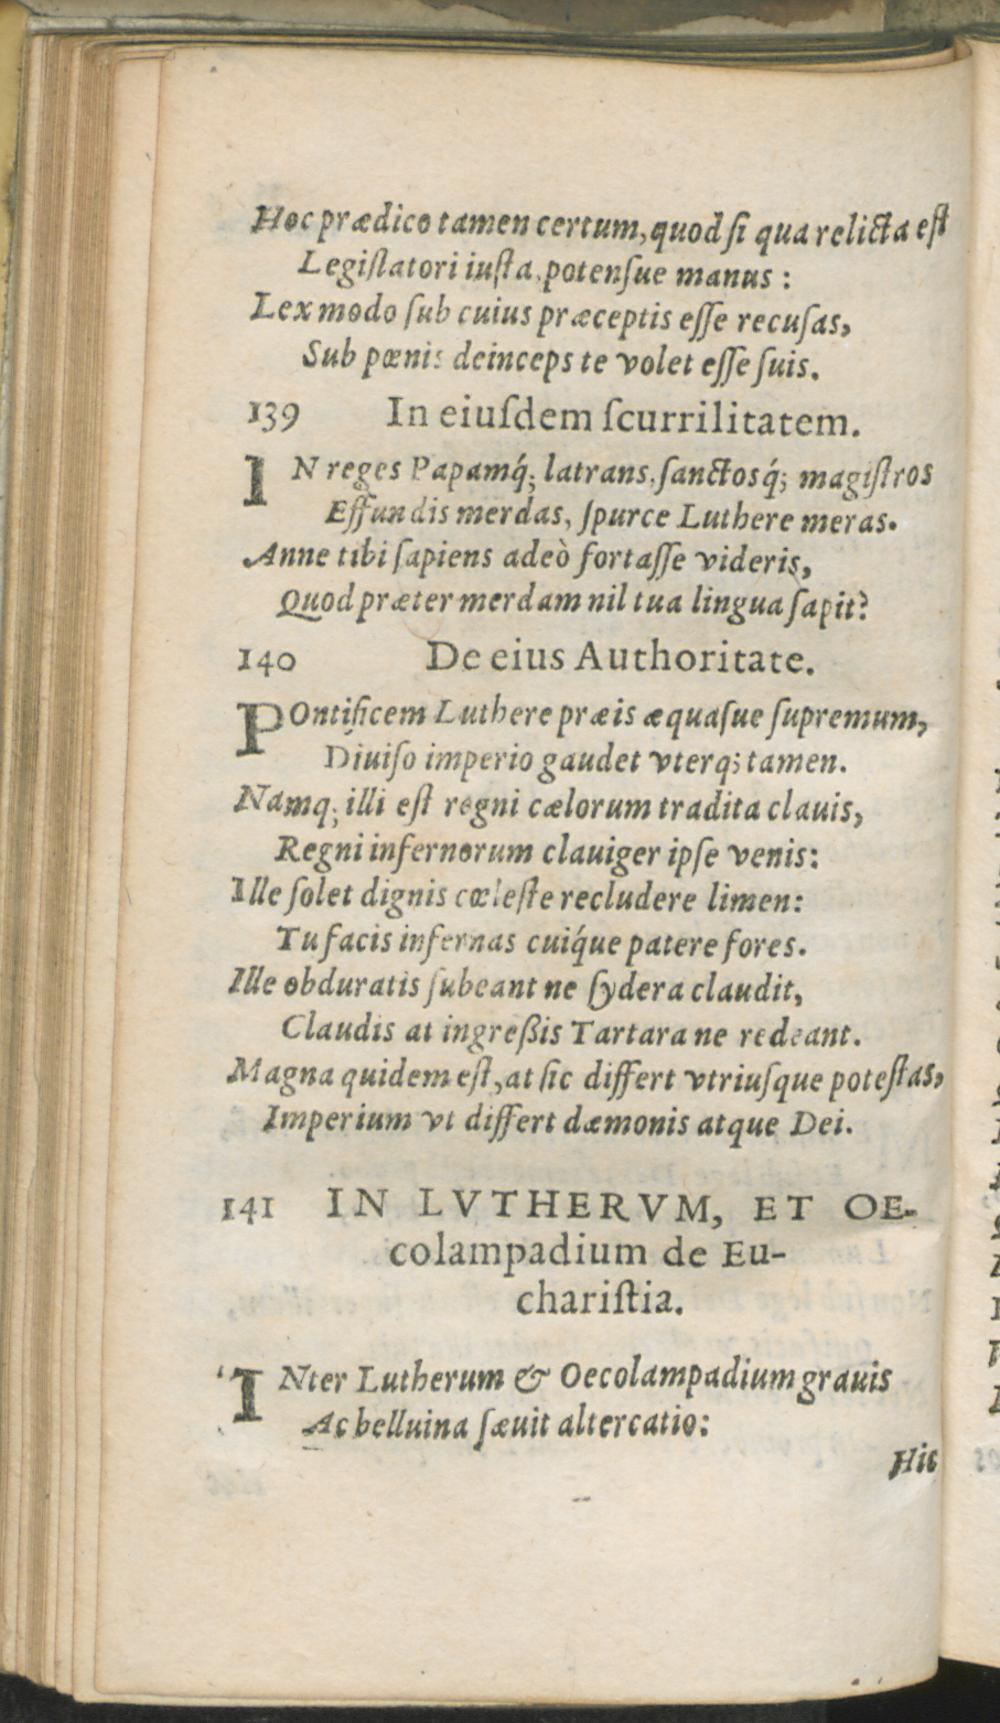 Hoc prædico tamen certum, quod ſi qua relicta eſt
Legiſlatori iuſta, potenſue manus :
Lex modo ſub cuius præceptis eſſe recuſas,
Sub pœnis deinceps te volet eſſe ſuis.
139 In eiuſdem ſcurrilitatem.
IN reges Papamq́; latrans, ſanctosq́; magiſtros
Effundis merdas, ſpurce Luthere meras.
Anne tibi ſapiens adeò fortaſſe videris,
Quod præter merdam nil tua lingua ſapit?
140 De eius Authoritate.
POntificem Luthere præis æquaſue ſupremum,
Diuiſo imperio gaudet vterq; tamen.
Namq; illi eſt regni cælorum tradita clauis,
Regni infernorum clauiger ipſe venis:
Ille ſolet dignis cœleſte recludere limen:
Tu facis infernas cuiq́ue patere fores.
Ille obduratis ſubeant ne ſydera claudit,
Claudis at ingreßis Tartara ne redeant.
Magna quidem eſt, at ſic differt vtriuſque poteſtas,
Imperium vt differt dæmonis atque Dei.
141 IN LVTHERVM, ET OE-
colampadium de Eu-
chariſtia.
INter Lutherum & Oecolampadium grauis
Ac belluina ſæuit altercatio:
Hic